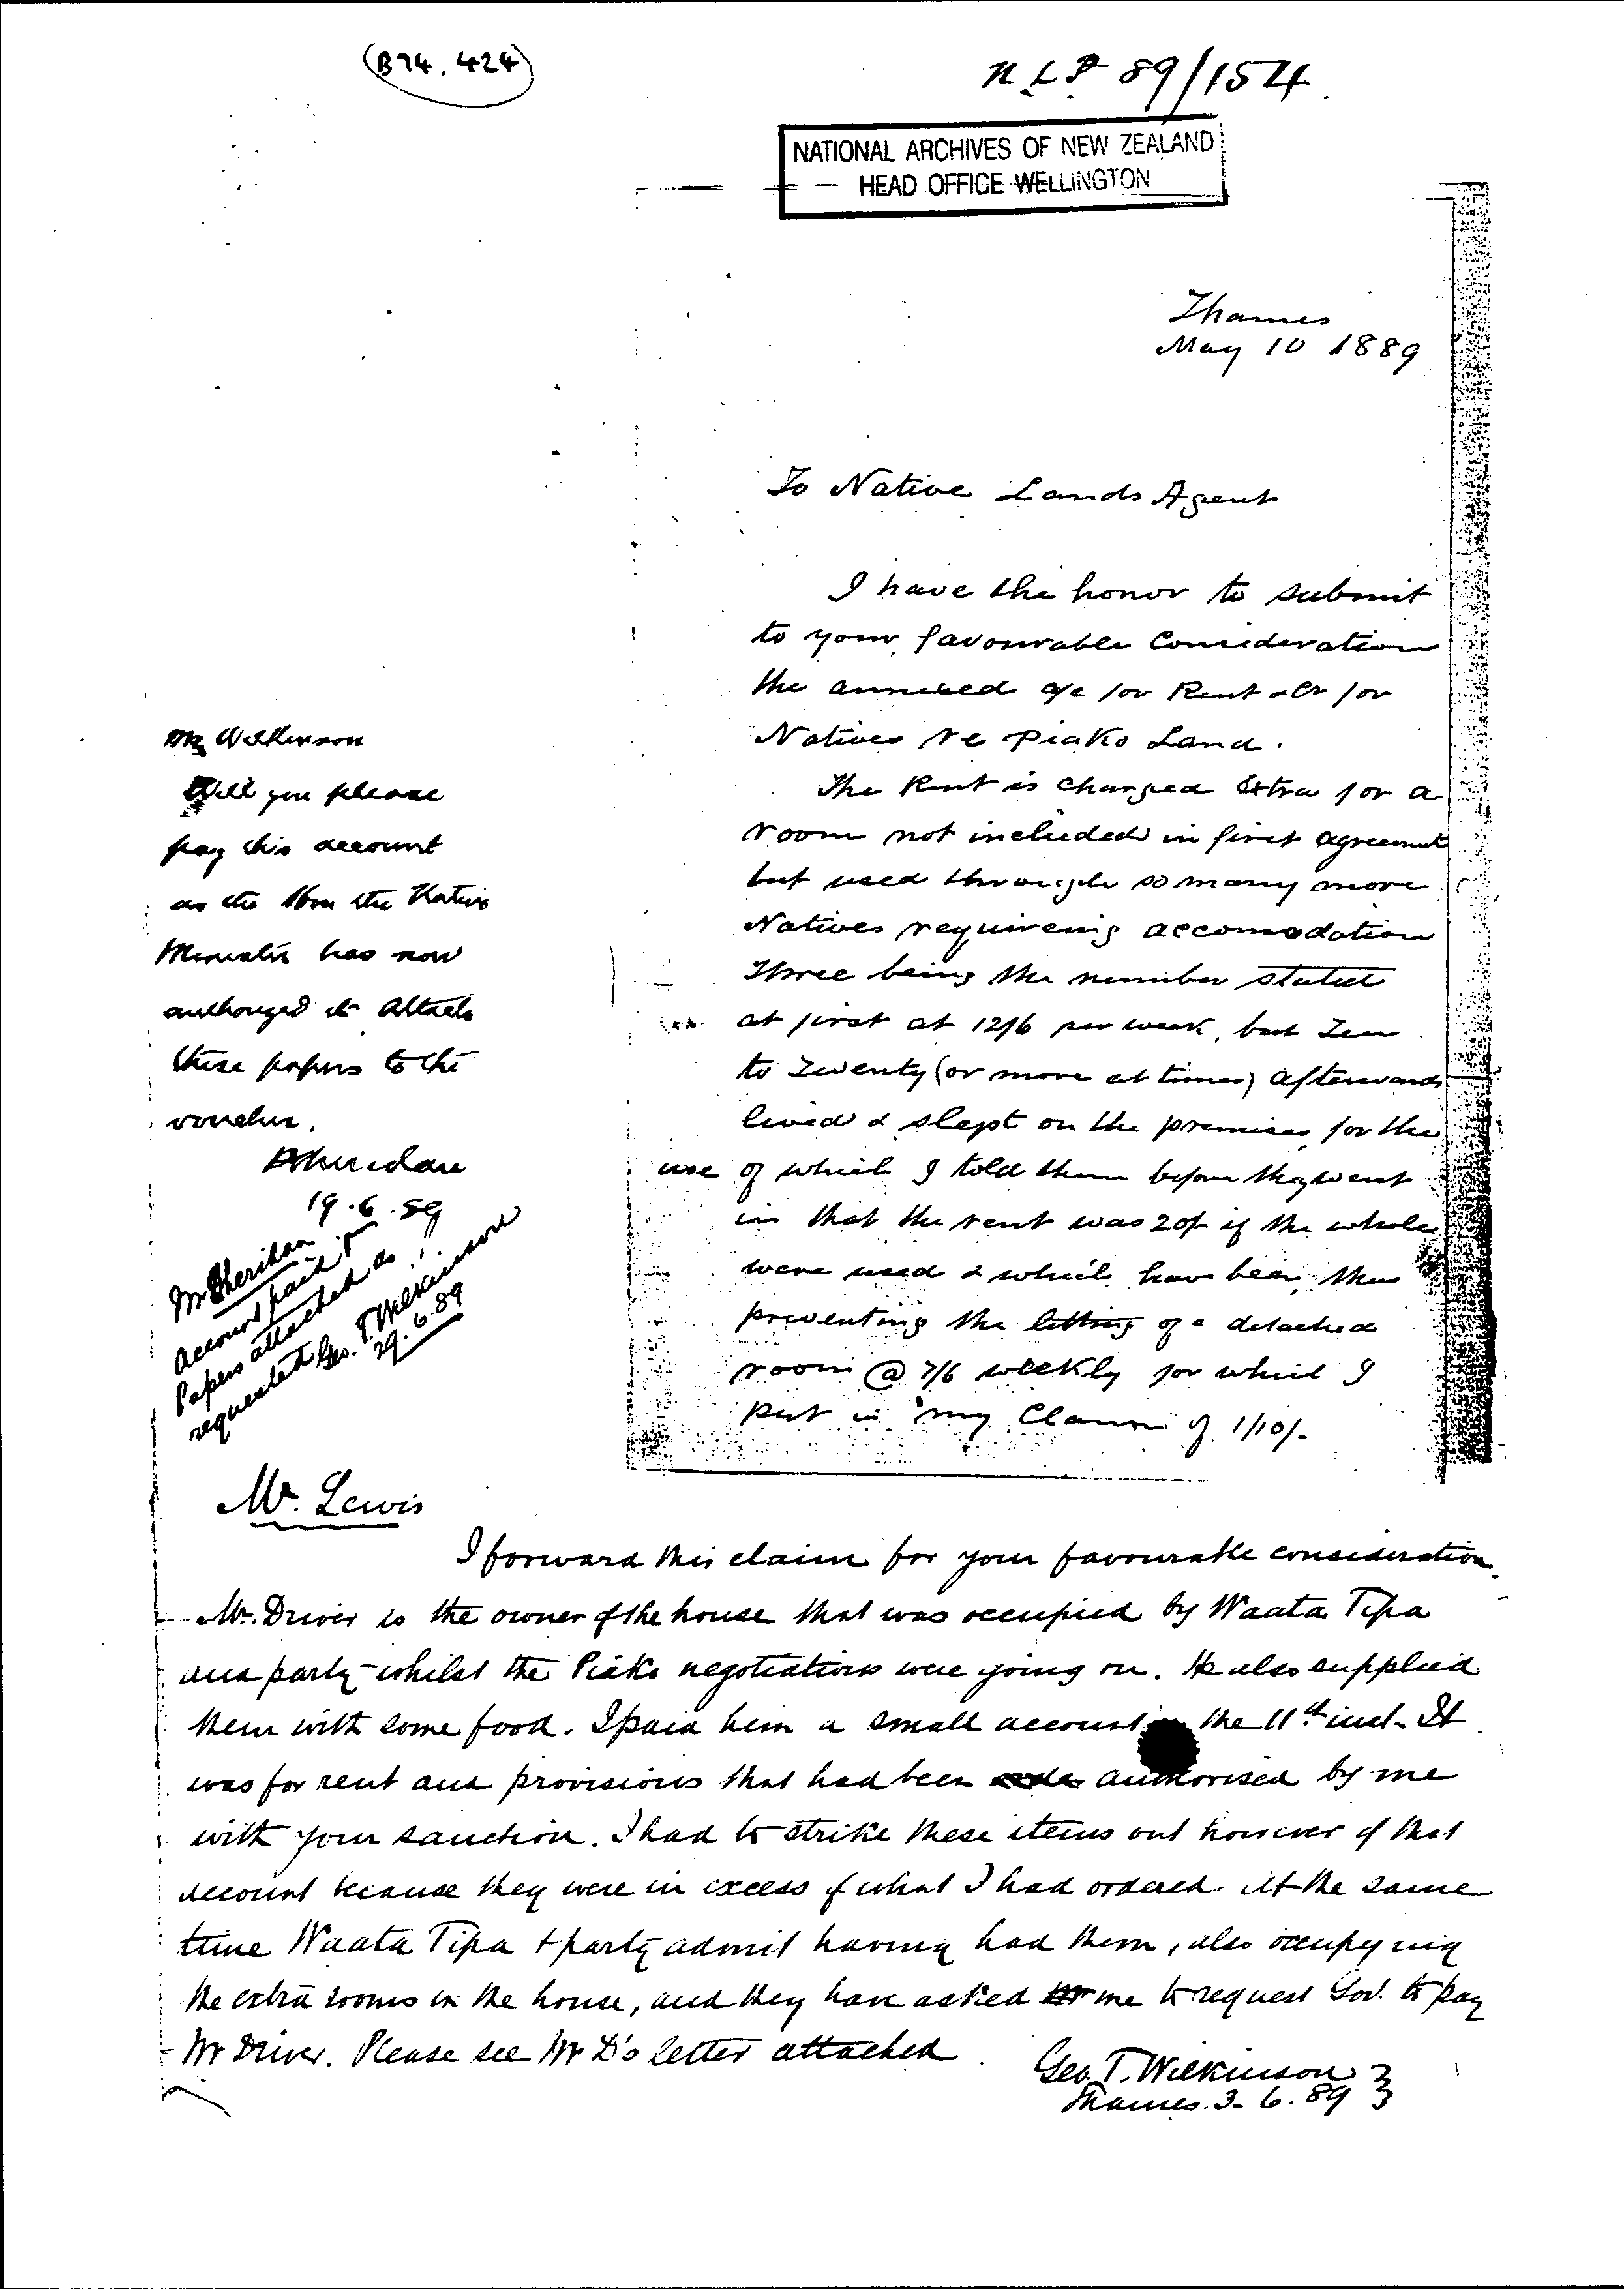 (B74. 424)
N L P 89/154
NATIONAL ARCHIVES OF NEW ZEALAND
HEAD OFFICE WELLINGTON
Thames
May 10 1889
To Native Lands Agent
I have the honor to submit
to your favourable Consideration
the annexed a/c for Rent &c for
Natives re Piako Land.
The Rent is charged Extra for a
room not included in first agreement
but used through so many more
Natives requireing accomodation
Three being the number stated
at first at 12/6 per week, but Ten
to Twenty (or more at times) afterwards
lived & slept on the premises for the
use of which I told them before they went
in that the rent was 20/- if the whole
were used & which have been, thus
preventing the letting of a detached
room @ 7/6 weekly for which I
put in my Claim of 1/10/-
Mr Wilkinson
Will you please
pay this account
as the Hon the Native
Minister has now
authorized it Attach
these papers to the
voucher.
PSheridan
19.6.89
Mr Sheridan
Account paid &
Papers attached as
requested Geo. T. Wilkinson
29.6.89
Mr. Lewis
I forward this claim for your favourable consideration.
Mr. Driver is the owner of the house that was occupied by Waata Tipa
and party whilst the Piako negotiations were going on. He also supplied
them with some food. I paid him a small account the 11th inst. It
was for rent and provisions that had been authorised by me
with your sanction. I had to strike these items out however of that
account because they were in excess of what I had ordered. At the same
time Waata Tipa & party admit having had them, also occupying
the extra rooms in the house, and they have asked me to request Gov. to pay
Mr Driver. Please see Mr D's letter attached
Geo. T. Wilkinson
Thames. 3-6.89